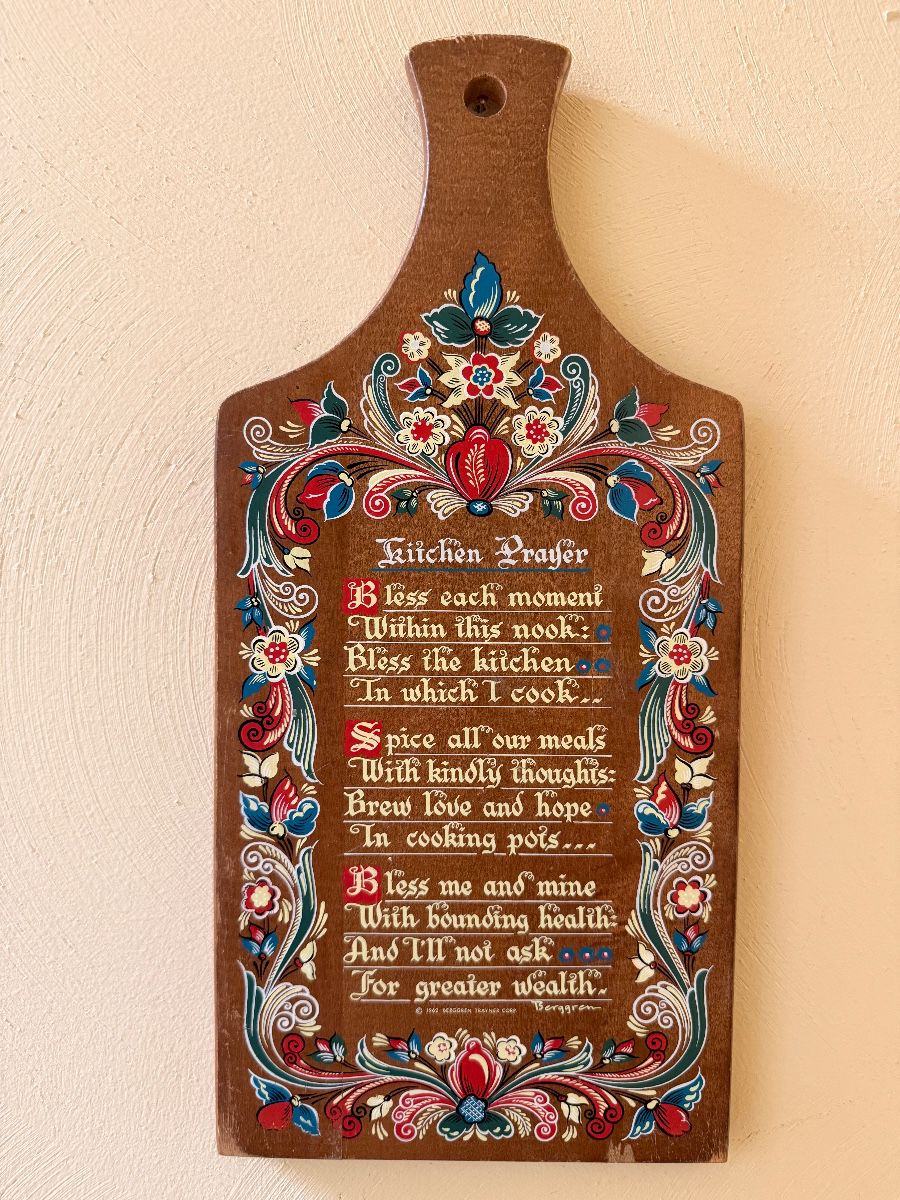 Kitchen Prayer
Bless each moment
Within this nook:
Bless the kitchen
In which I cook..
Spice all our meals
With kindly thoughts:
Brew love and hope
In cooking pots...
Bless me and mine
With bounding health:
And I'll not ask
For greater wealth.
Berggren
© 1962 BERGGREN TRAYNER CORP.